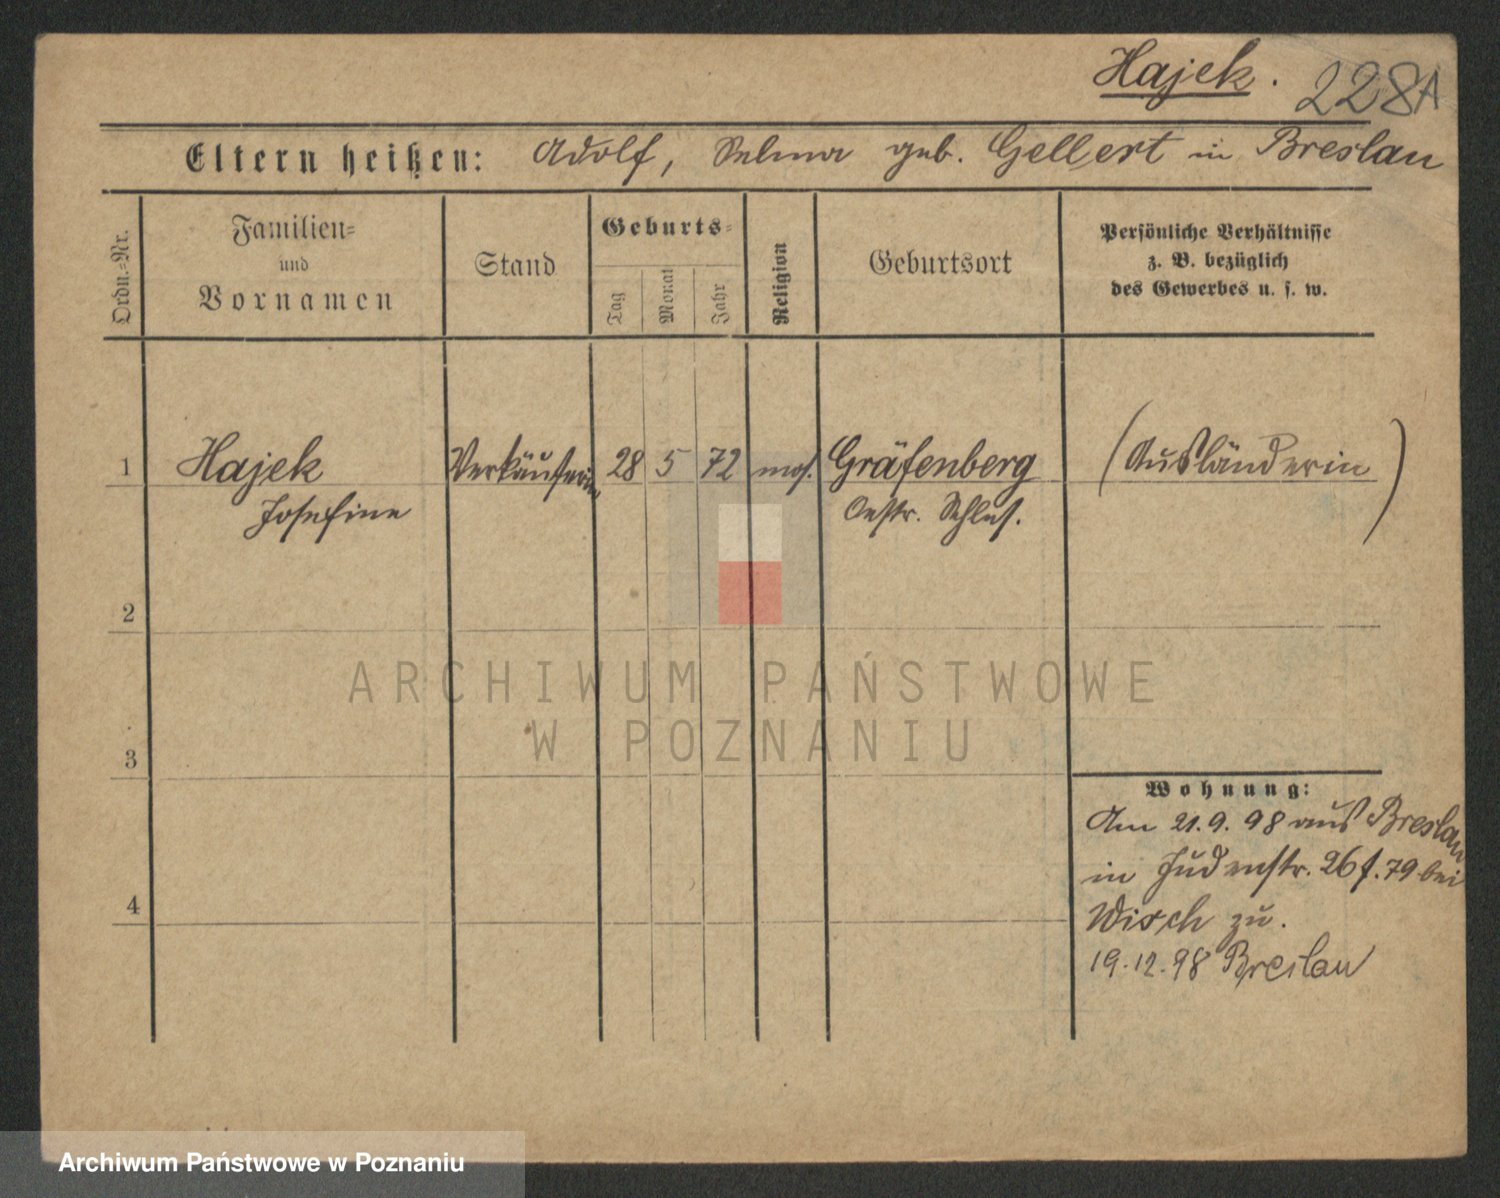 Hajek. 228A
Eltern heißen: Adolf, Selma geb. Gellert in Breslau
Ordn.-Nr.
Familien-
und
Vornamen
Stand
Geburts-
Tag
Monat
Jahr
Religion
Geburtsort
Persönliche Verhältnisse
z. B. bezüglich
des Gewerbes u. s. w.
1 Hajek Verkäuferin 28 5 72 mos. Gräfenberg (Ausländerin)
Josefine Oestr. Schles.
2
3
4
Wohnung:
Am 21.9.98 aus Breslau
in Judenstr. 26 f. 79 bei
Wisch zu.
19.12.98 Breslau
ARCHIWUM PAŃSTWOWE
W POZNANIU
Archiwum Państwowe w Poznaniu